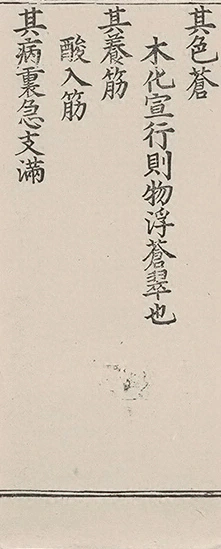 其色蒼
木化宣行則物浮蒼翠也
其養筋
酸入筋
其病裏急支滿